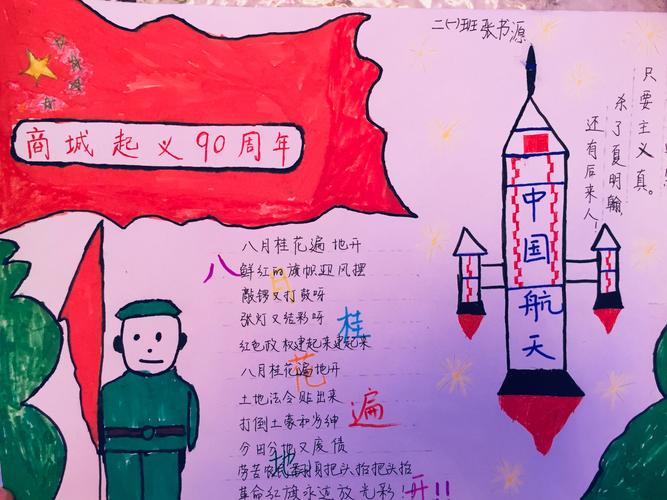 二(一)班张书源
商城起义90周年
八月桂花遍地开
鲜红的旗帜迎风摆
敲锣又打鼓呀
张灯又结彩呀
红色政权建起来建起来
八月桂花遍地开
土地法令贴出来
打倒土豪和劣绅
分田分地又废债
劳苦农民翻身把头抬把头抬
革命红旗永远放光彩!
八月桂花遍地开!!
中国航天
只要主义真。
杀了夏明翰,
还有后来人!